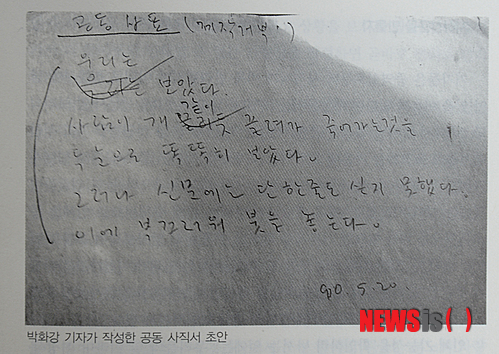 공동 사표 (제작거부·)
우리는
우리는 보았다.
같이
사람이 개 끌리듯 끌려가 죽어가는것을
두눈으로 똑똑히 보았다.
그러나 신문에는 단 한줄도 싣지 못했다.
이에 부끄러워 붓을 놓는다.
80. 5. 20.
NEWSis( )
박화강 기자가 작성한 공동 사직서 초안